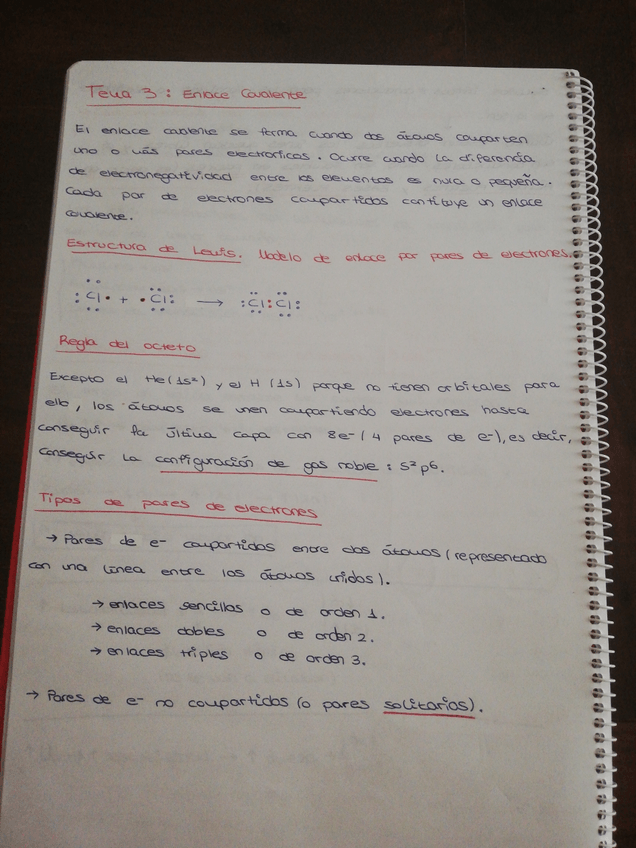 Tema 3: Enlace Covalente
El enlace covalente se forma cuando dos átomos comparten
uno o más pares electrónicos. Ocurre cuando la diferencia
de electronegatividad entre los elementos es nula o pequeña.
Cada par de electrones compartidos contituye un enlace
covalente.
Estructura de Lewis. Modelo de enlace por pares de electrones.
:Cl· + ·Cl: → :Cl:Cl:
Regla del octeto
Excepto el He (1s²) y el H (1s) porque no tienen orbitales para
ello, los átomos se unen compartiendo electrones hasta
conseguir la última capa con 8e⁻ (4 pares de e⁻), es decir,
conseguir la configuración de gas noble: s²p⁶.
Tipos de pares de electrones
→ Pares de e⁻ compartidos entre dos átomos (representado
con una línea entre los átomos unidos).
→ enlaces sencillos o de orden 1.
→ enlaces dobles o de orden 2.
→ enlaces triples o de orden 3.
→ Pares de e⁻ no compartidos (o pares solitarios).